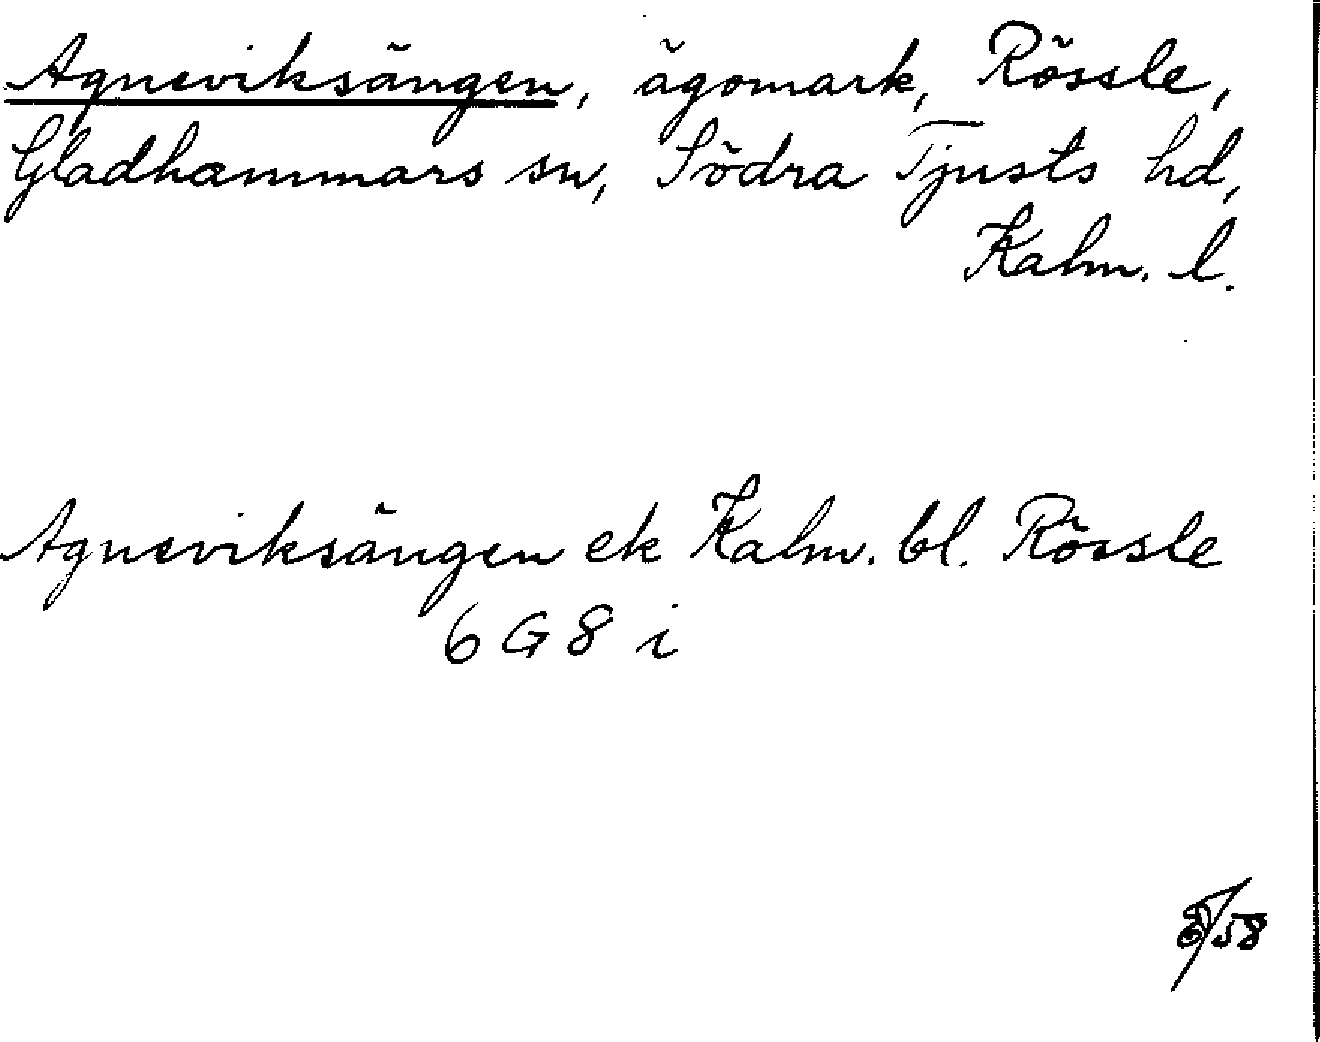 Agneviksängen, ägomark, Rössle,
Gladhammars sn, Södra Tjusts hd,
Kalm. l.
Agneviksängen ek Kalm. bl. Rössle
6 G 8 i
/58